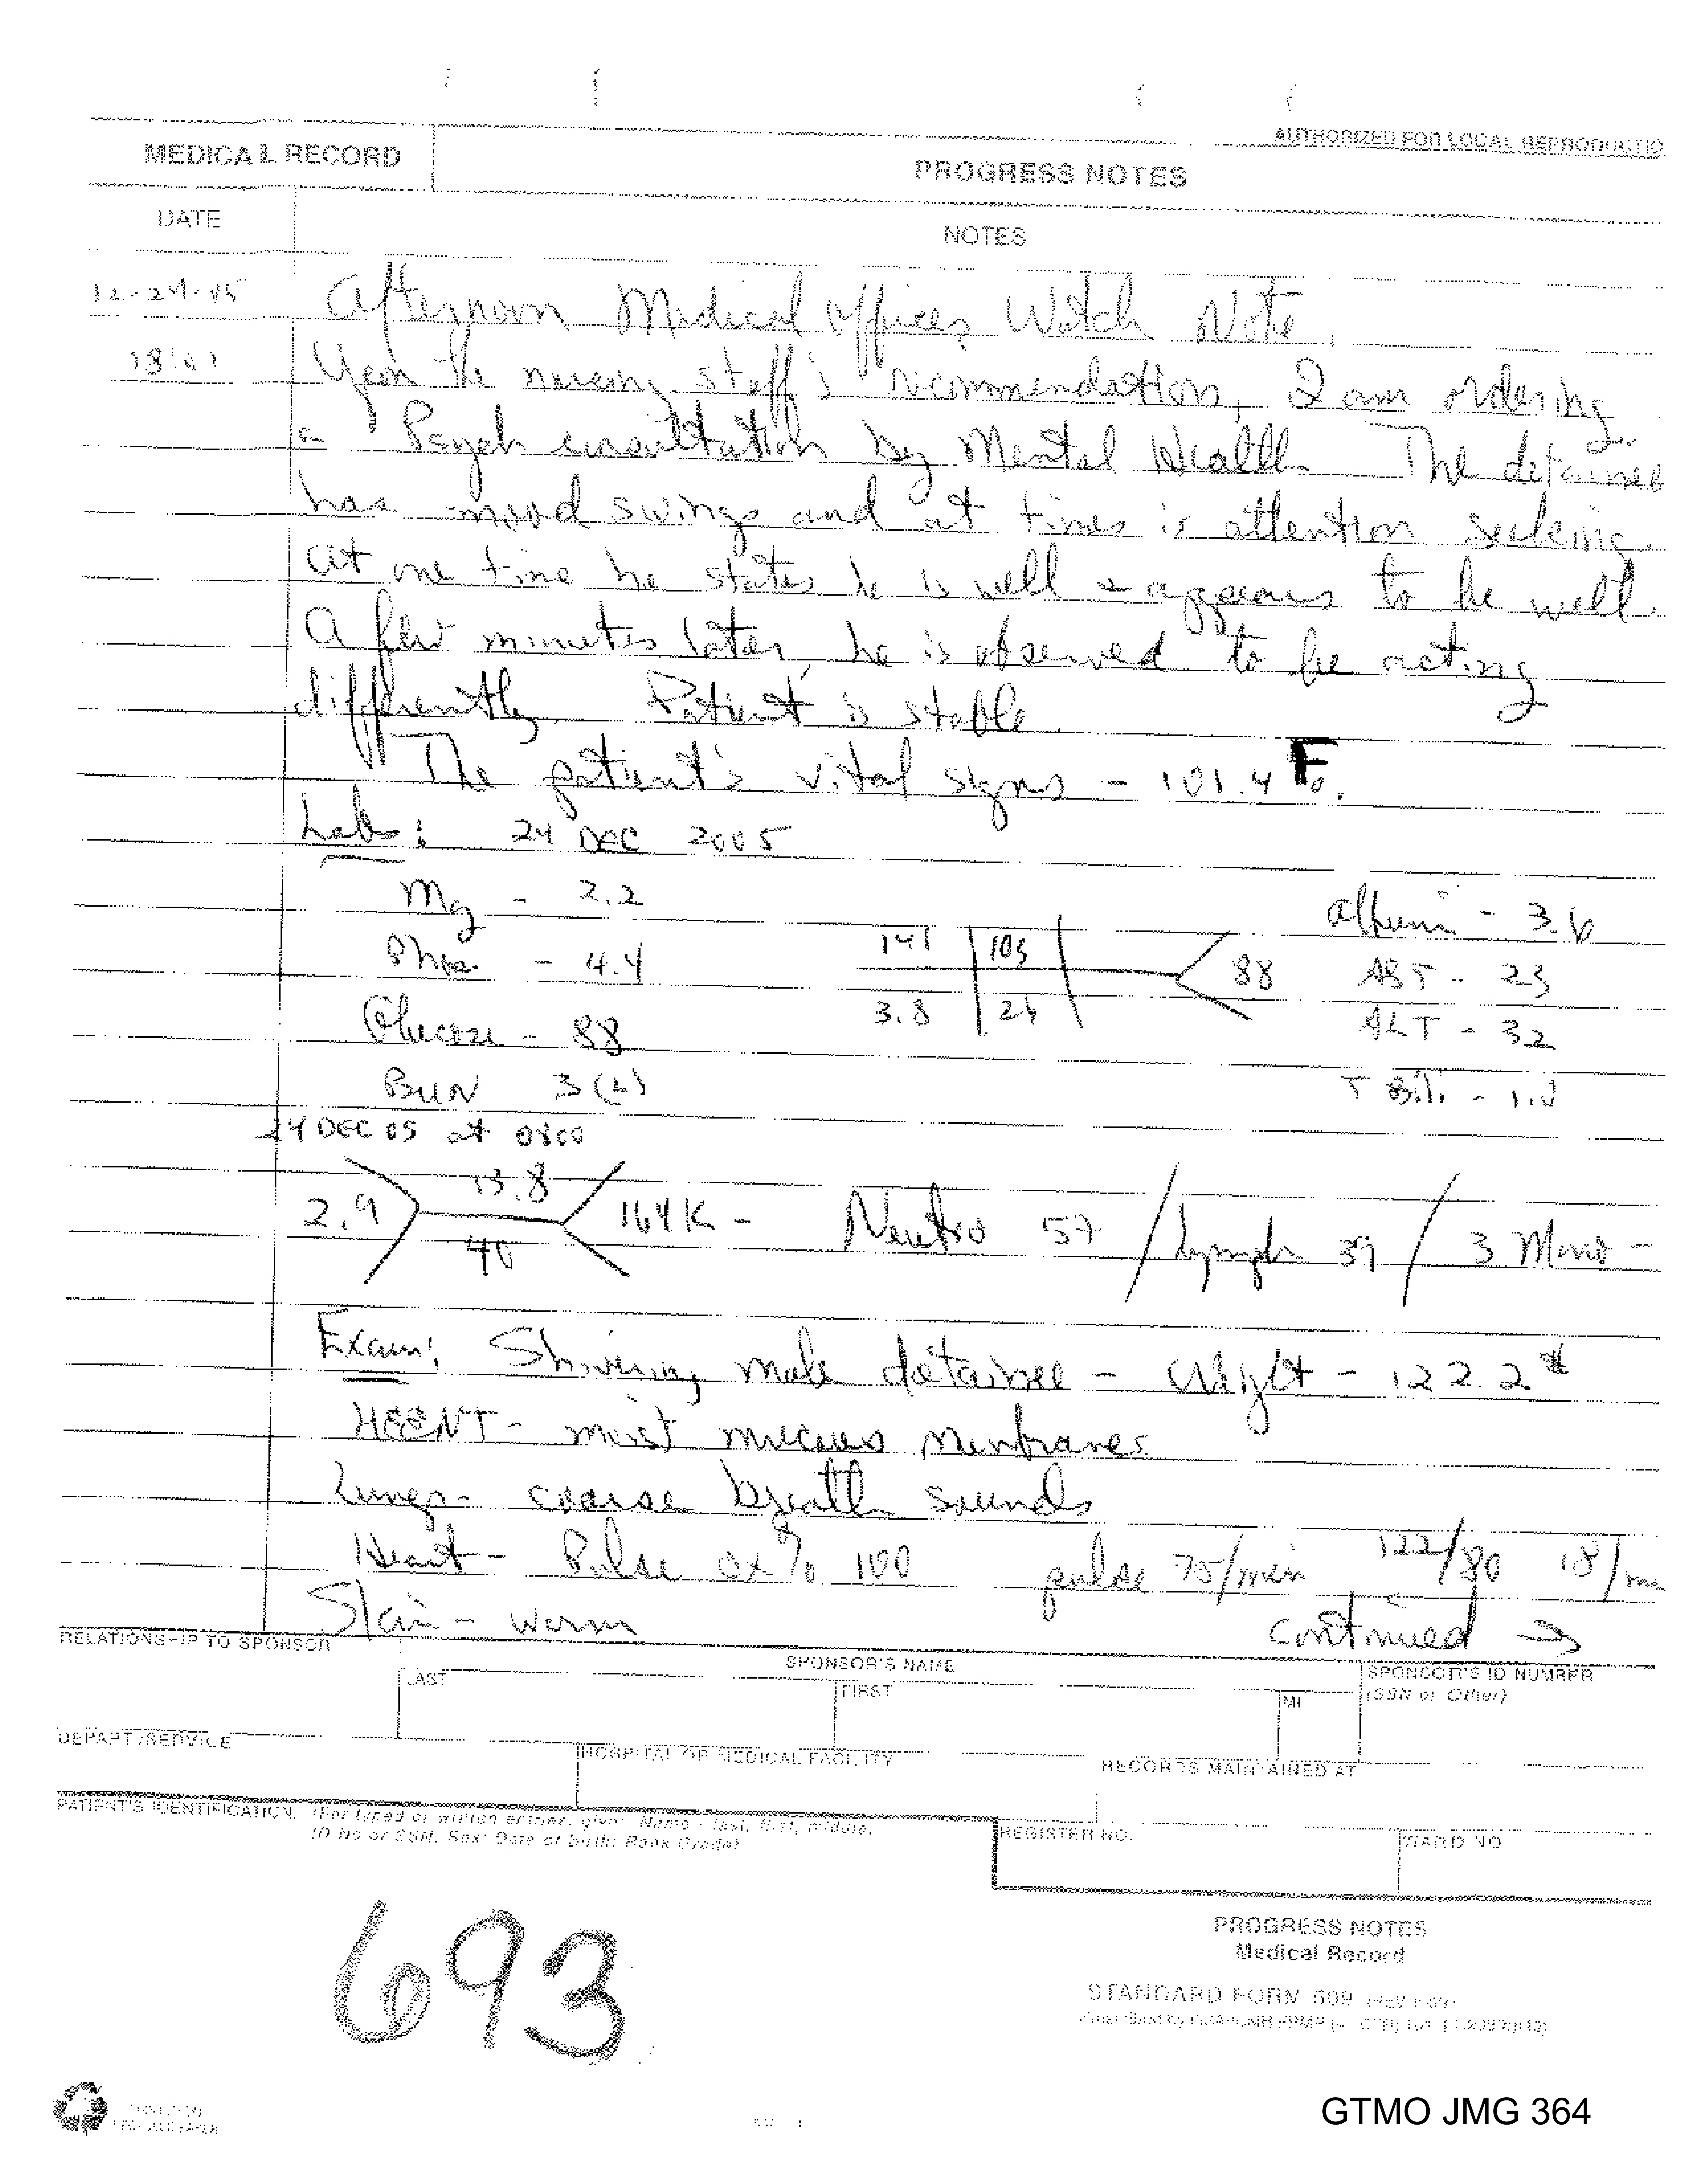 AUTHORIZED FOR LOCAL REPRODUCTIO
MEDICAL RECORD
PROGRESS NOTES
DATE
NOTES
12-24-05 Afternoon Medical Officer Watch Note.
Upon the nursing staff's recommendation, I am ordering
a Psych consultation by Mental Health. The detainee
has mood swings and at times is attention seeking.
At one time he states he is well & appears to be well.
A few minutes later, he is observed to be acting
differently. Patient is stable.
The patient's vital signs - 101.4 F.
Labs: 24 DEC 2005
Mg - 2.2
Phos. - 4.4
Glucose - 88
BUN 3 (L)
141 103
3.8
88
Albumi - 3.6
AST - 23
ALT - 32
T Bili -
24 DEC 05 at 0800
2.9 13.8 40 164K - Neutro 57 / Lymph 39 / 3 Mono -
Exam: Shivering male detainee - Weight - 122.2 #
HEENT - moist mucous membranes
Lungs - coarse breath sounds
Heart - Pulse ox % 100 pulse 75/min 122/80 18/
Skin - warm
continued →
RELATIONSHIP TO SPONSOR
SPONSOR'S NAME
LAST
FIRST
MI
SPONSOR'S ID NUMBER
(SSN or Other)
DEPART./SERVICE
HOSPITAL OR MEDICAL FACILITY
RECORDS MAINTAINED AT
PATIENT'S IDENTIFICATION: (For typed or written entries, give: Name - last, first, middle;
ID No or SSN; Sex; Date of birth; Rank/Grade)
REGISTER NO.
WARD NO
693
PROGRESS NOTES
Medical Record
STANDARD FORM 509
GTMO JMG 364